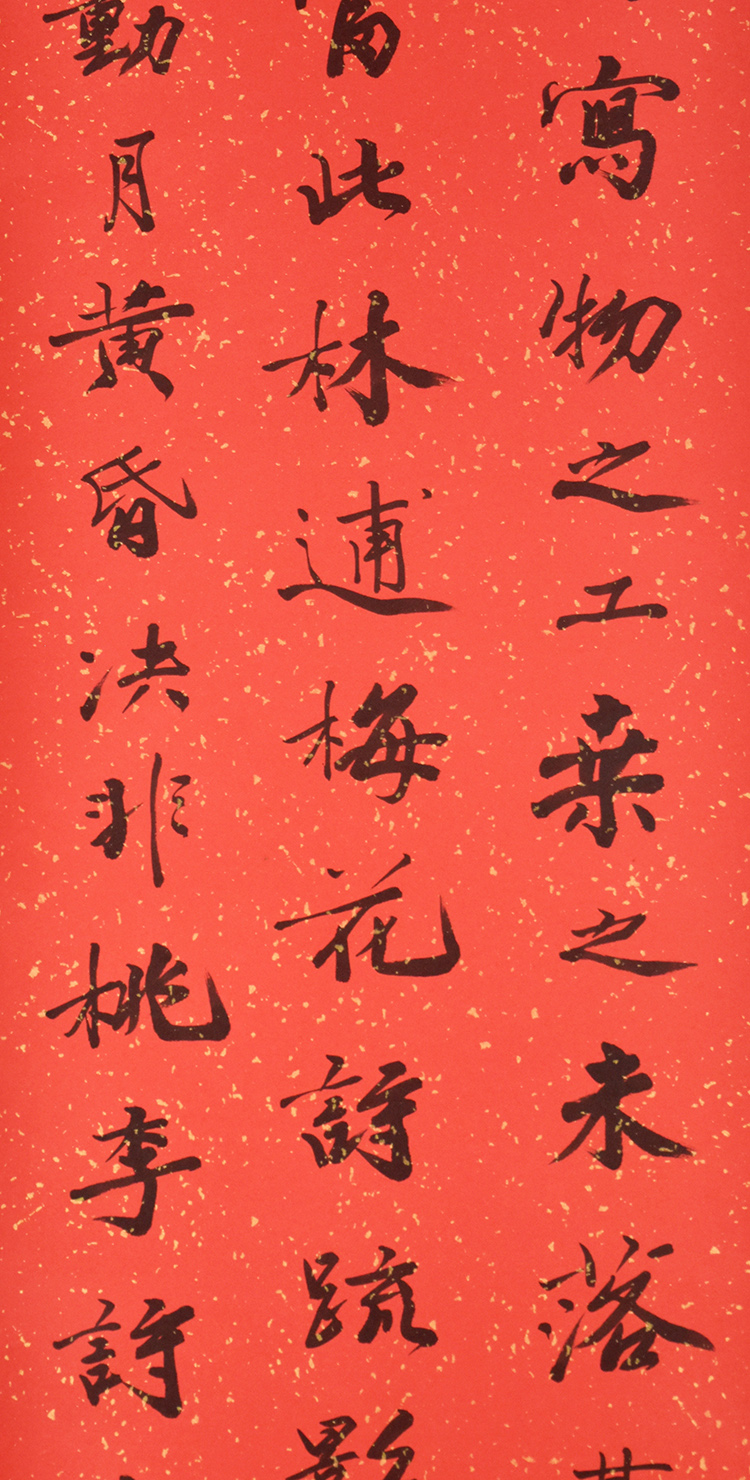 寫物之工桒之未落
當此林逋梅花詩䟽影
動月黄昏决非桃李詩